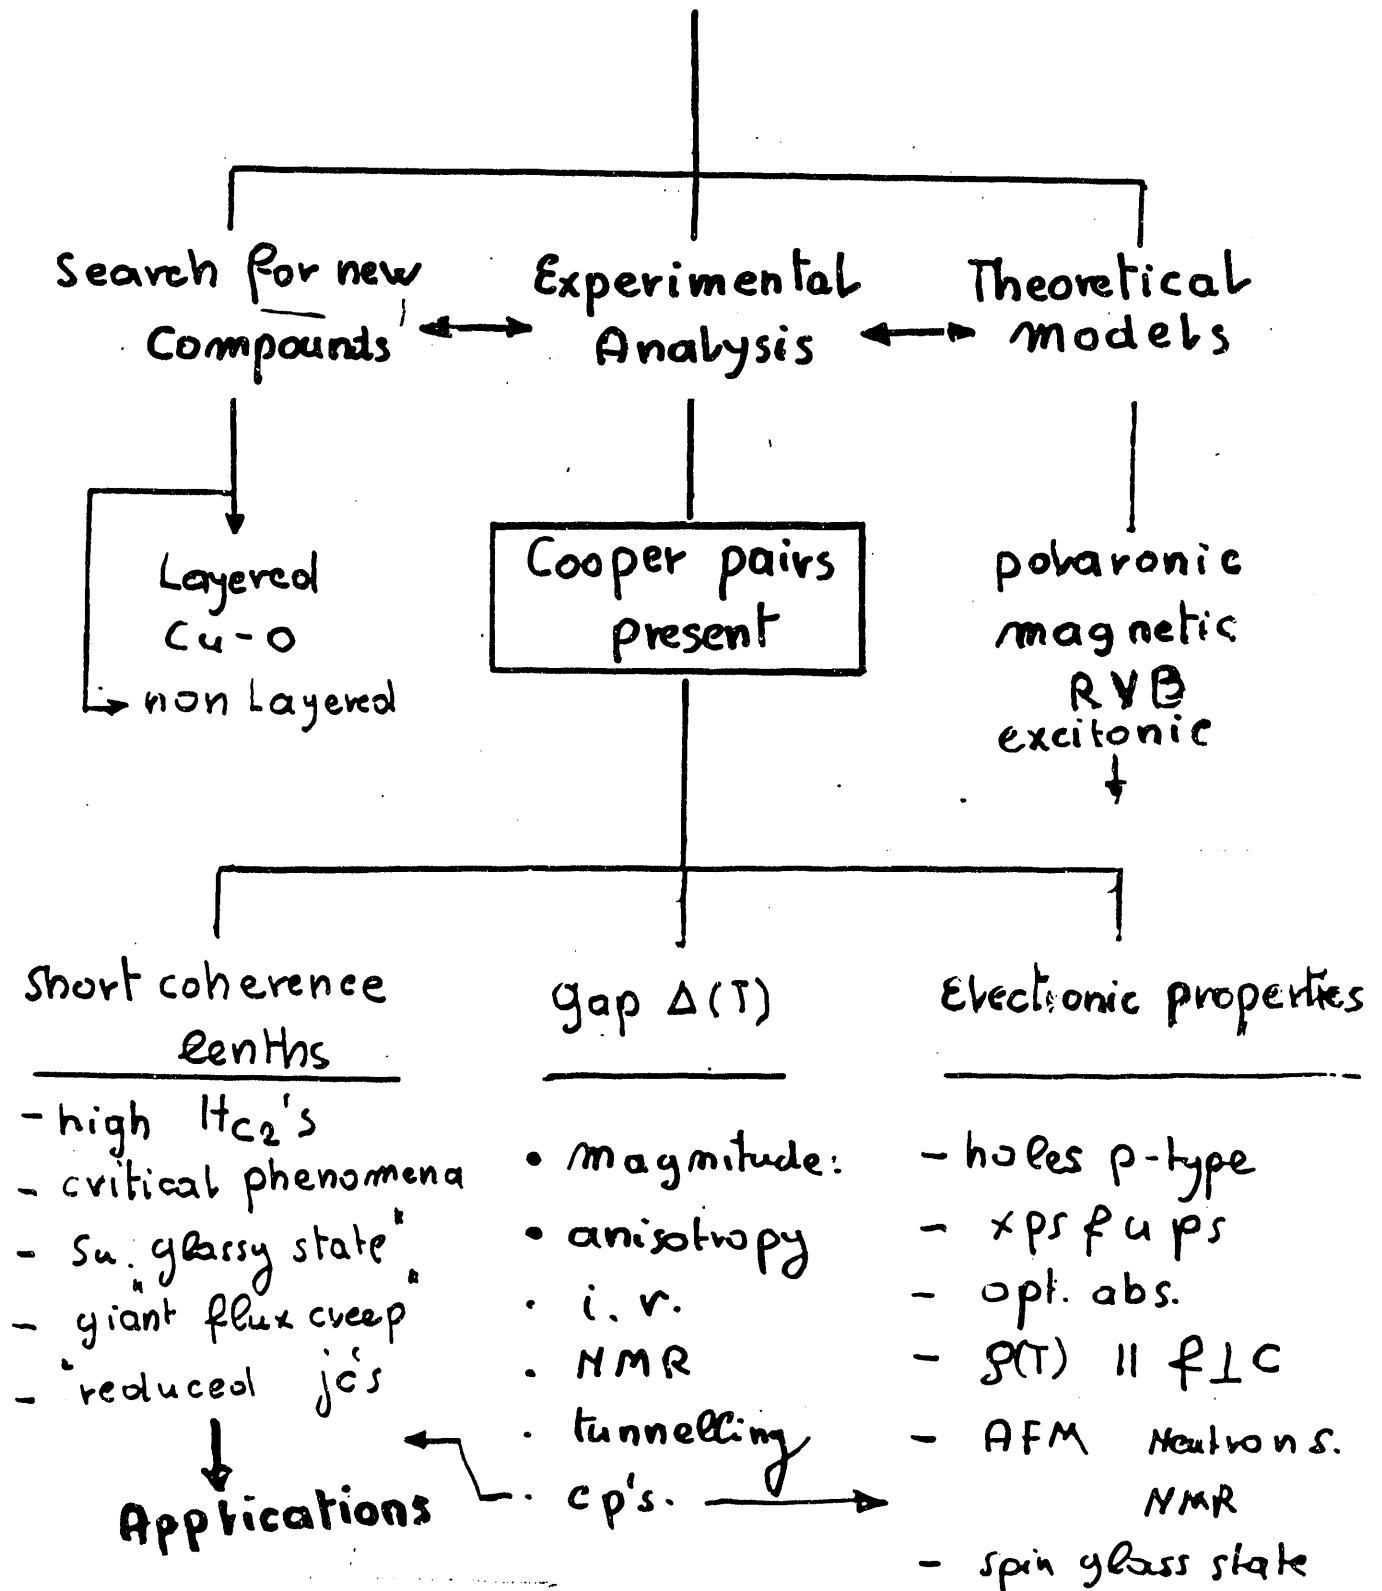 Search for new
Compounds
Experimental
Analysis
Theoretical
models
Layered
Cu-O
non Layered
Cooper pairs
present
polaronic
magnetic
RVB
excitonic
Short coherence
lenths
- high Hc2's
- critical phenomena
- Su. glassy state"
- "giant flux creep"
- "reduced jc's
Applications
gap Δ(T)
• magnitude:
• anisotropy
· i.r.
· NMR
· tunnelling
· cp's.
Electronic properties
- holes p-type
- xps & ups
- opt. abs.
- ρ(T) || & ⊥ C
- AFM Neutrons.
NMR
- spin glass state